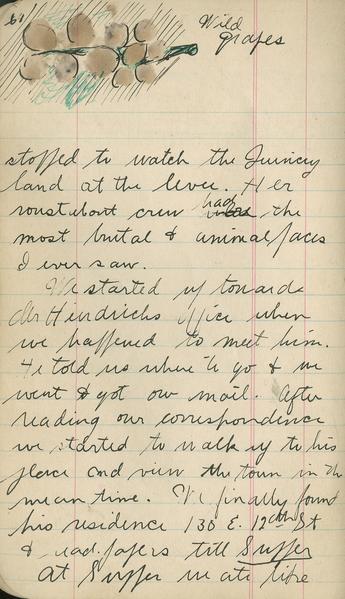 61
Wild
grapes
stopped to watch the Quincy
land at the levee. Her
roustabout crew had the
most brutal & animal faces
I ever saw.
We started up towards
Mr Hindrichs office when
we happened to meet him.
He told us where to go & we
went & got our mail. After
reading our correspondence
we started to walk up to his
place and view the town in the
mean time. We finally found
his residence 130 E. 12th St
& read papers till Supper
At Supper we ate like